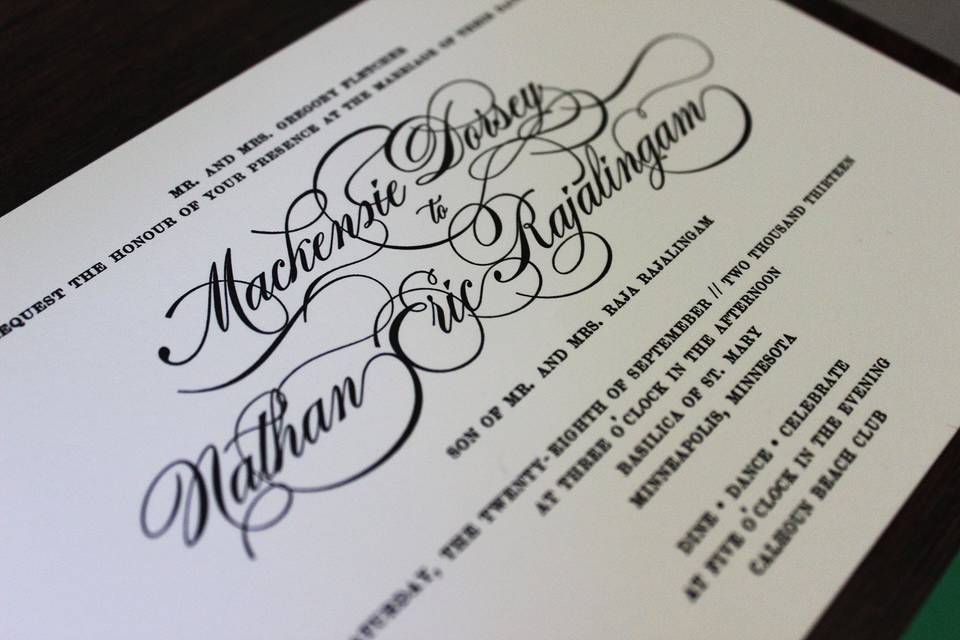 MR. AND MRS. GREGORY FLETCHER
REQUEST THE HONOUR OF YOUR PRESENCE AT THE MARRIAGE OF THEIR
Mackensie Dorsey
to
Nathan Eric Rajalingam
SON OF MR. AND MRS. RAJA RAJALINGAM
SATURDAY, THE TWENTY-EIGHTH OF SEPTEMEBER // TWO THOUSAND THIRTEEN
AT THREE O'CLOCK IN THE AFTERNOON
BASILICA OF ST. MARY
MINNEAPOLIS, MINNESOTA
DINE • DANCE • CELEBRATE
AT FIVE O'CLOCK IN THE EVENING
CALHOUN BEACH CLUB